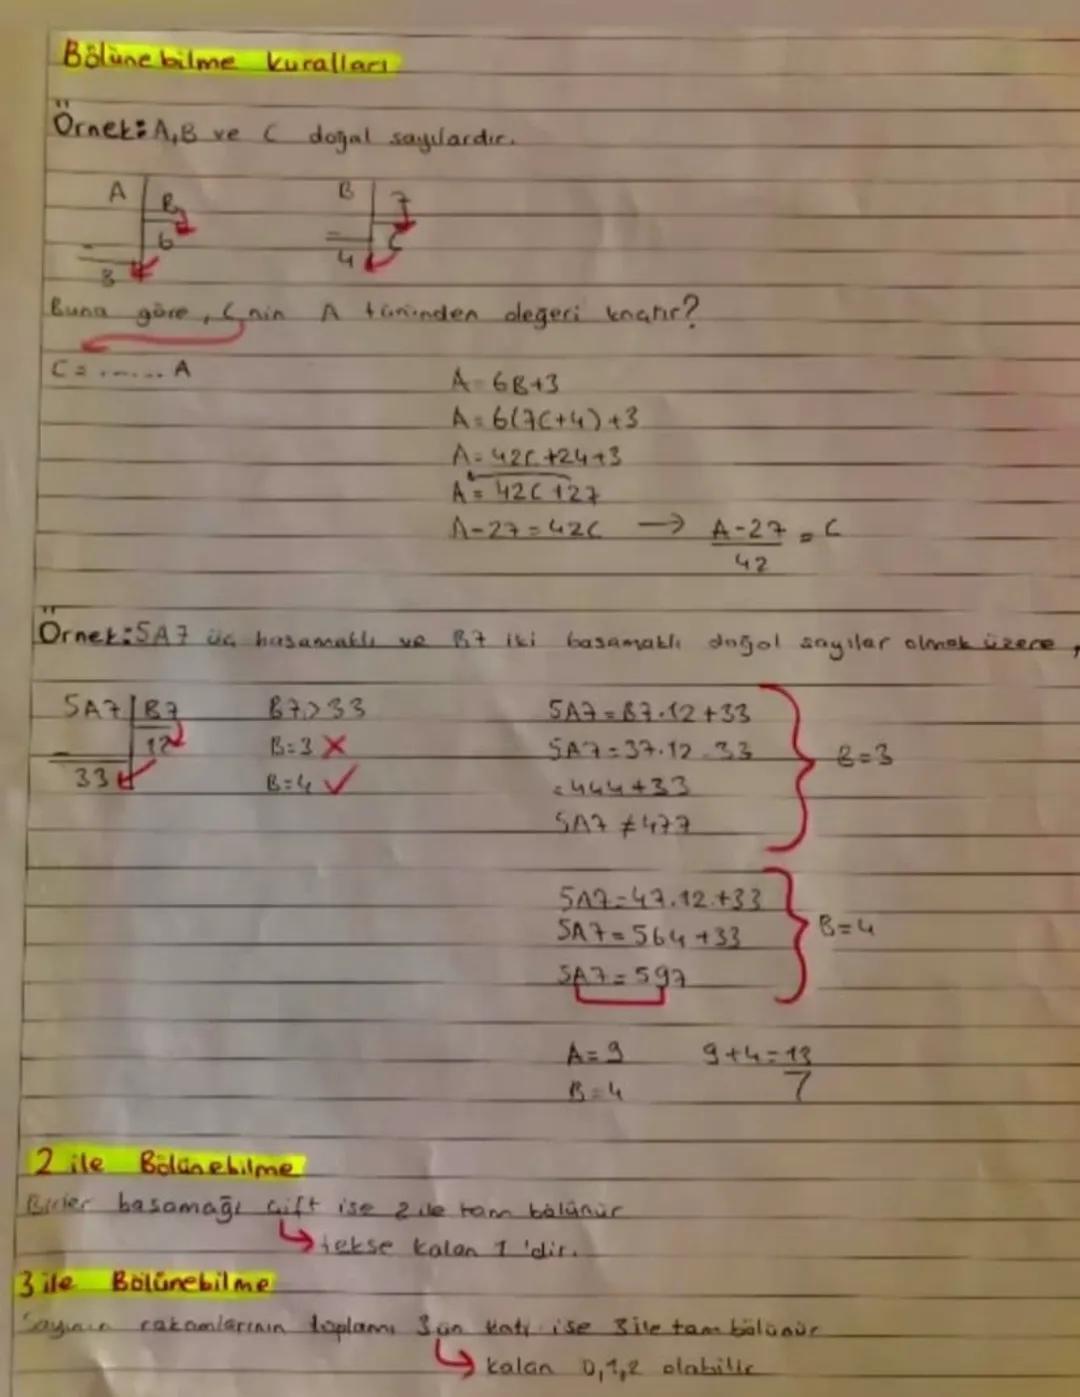 Bölünebilme kuralları
Örnek: A,B ve C doğal sayılardır.
A B B 7
6 C
3 4
Buna göre, C nin A türünden değeri kaçtır?
C = ...... A
A = 6B+3
A = 6(7C+4)+3
A = 42C+24+3
A = 42C+27
A-27=42C → A-27 = C
42
Örnek: 5A7 üç basamaklı ve B7 iki basamaklı doğal sayılar olmak üzere,
5A7 B7 B7>33 5A7=B7.12+33
12 B=3 X 5A7=37.12 33 B=3
33 B=4 ✓ =444+33
5A7≠477
5A7=47.12+33
5A7=564+33 B=4
5A7=597
A=9 9+4=13
B=4 7
2 ile Bölünebilme
Birler basamağı çift ise 2 ile tam bölünür
tekse kalan 1 'dir.
3 ile Bölünebilme
Sayının rakamlarının toplamı 3ün katı ise 3 ile tam bölünür
kalan 0,1,2 olabilir